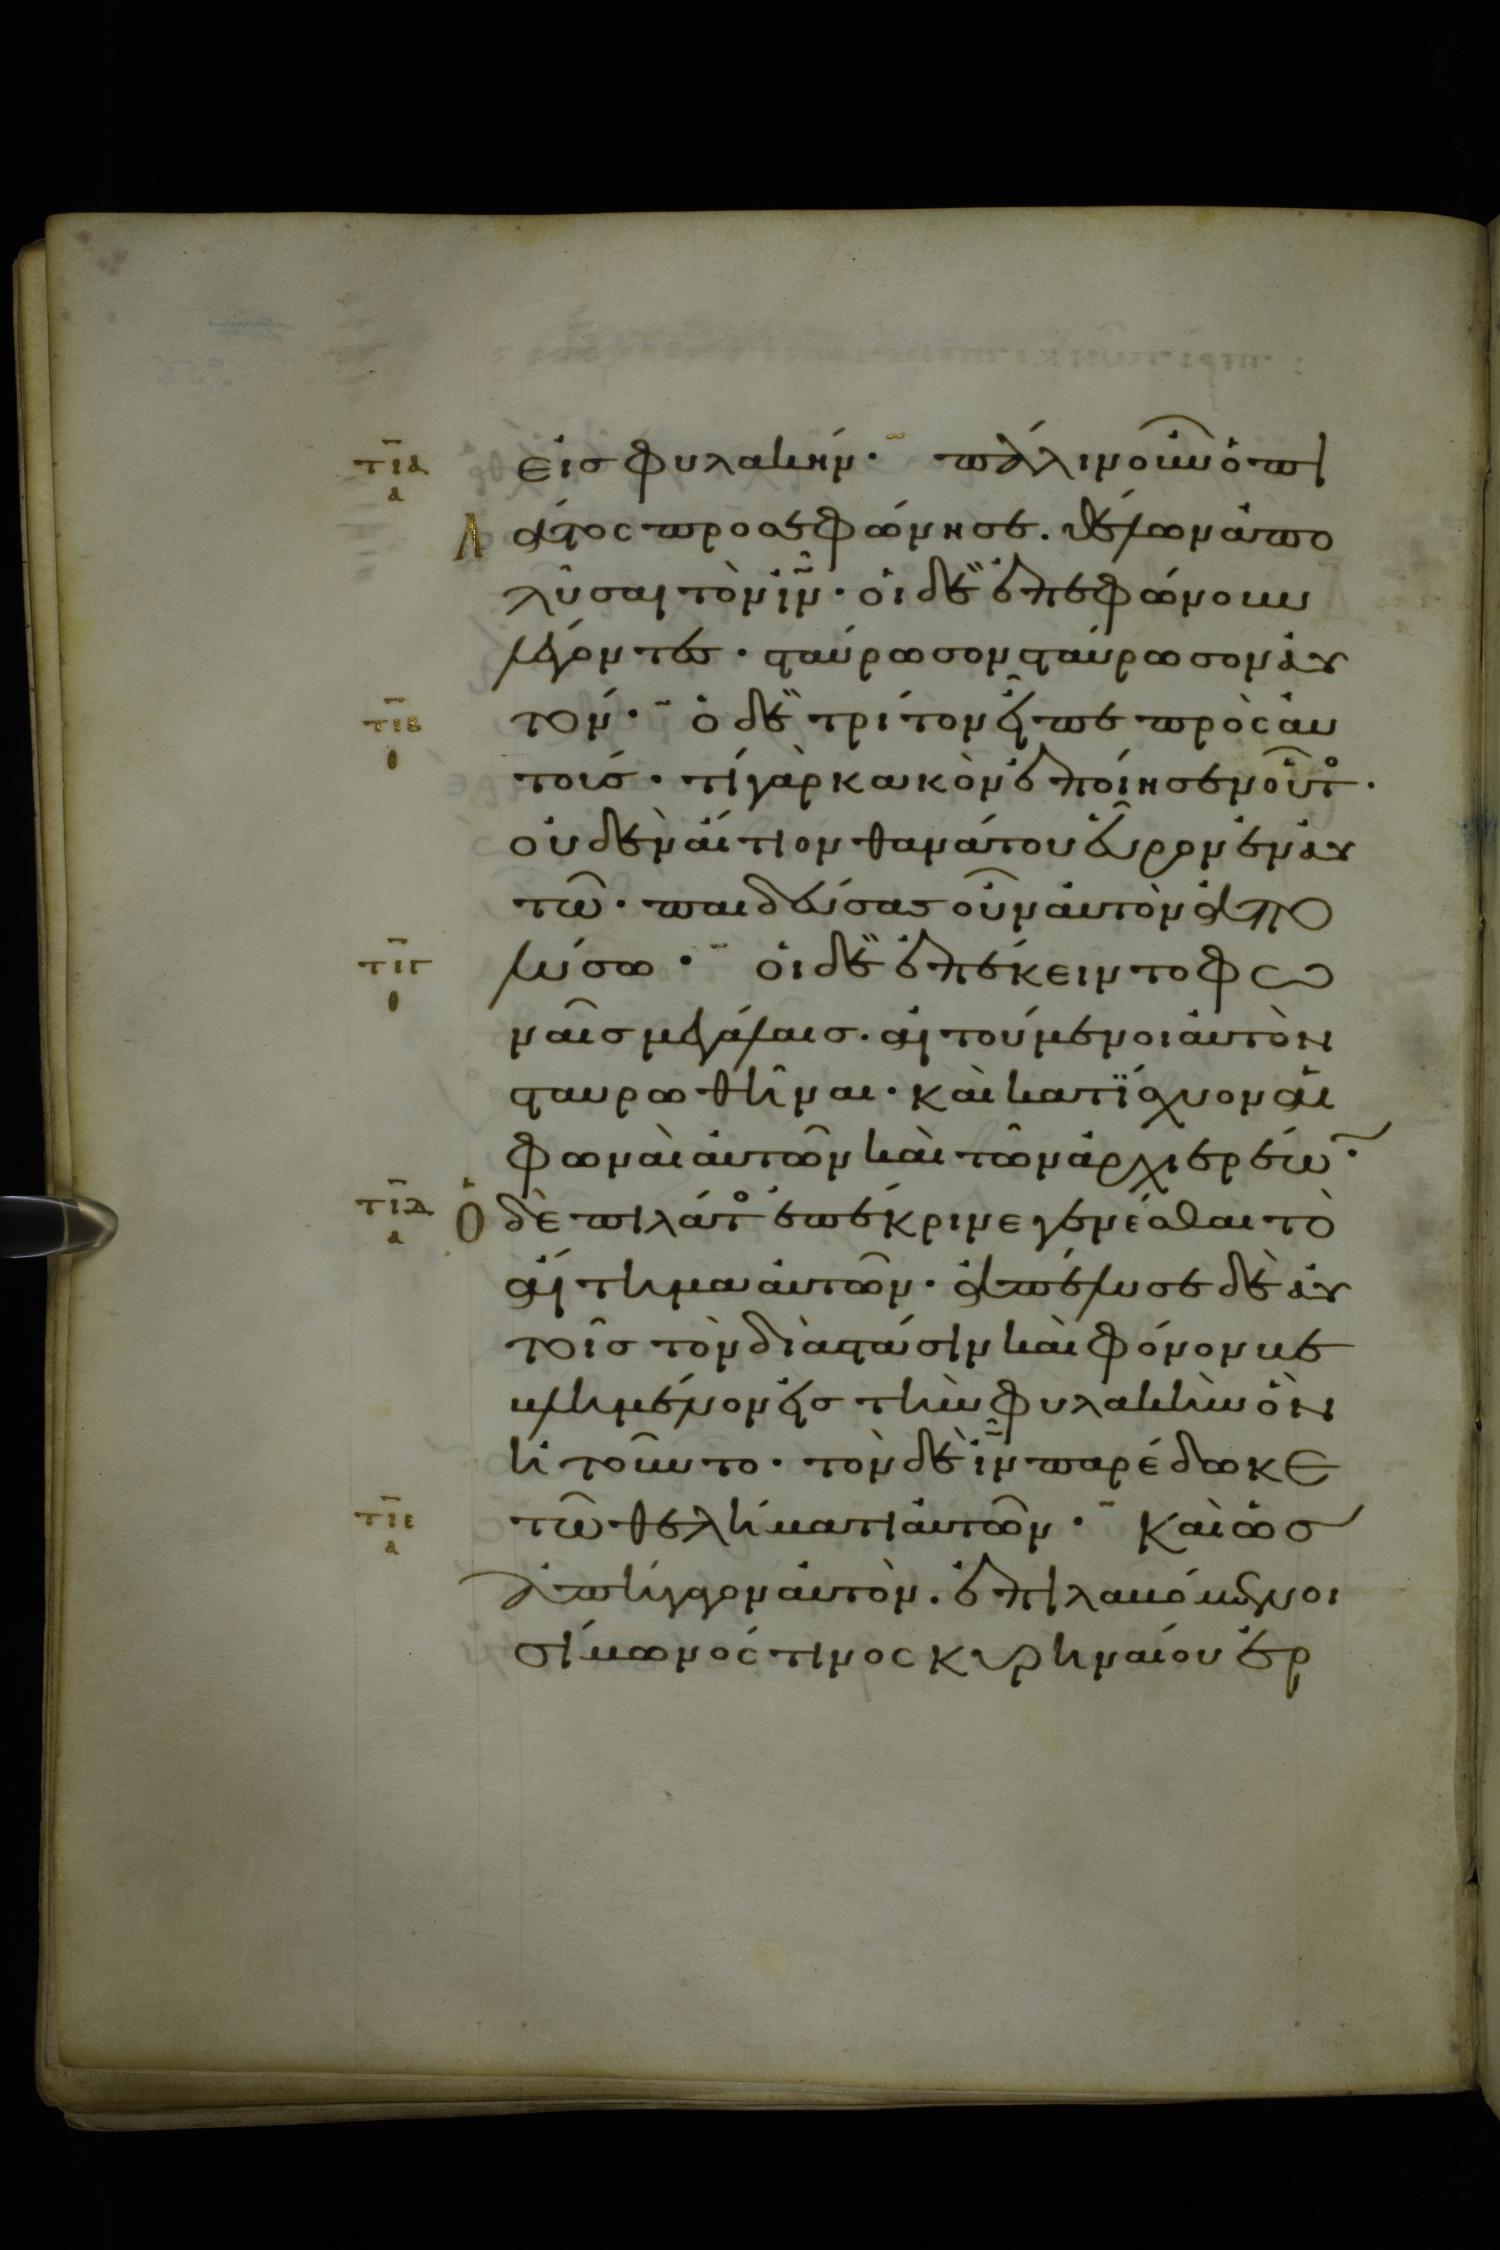 τια
α
εἰς φυλακήν· πάλιν οὖν ὁ πι
λάτος προσεφώνησε. θέλων ἀπο
λῦσαι τὸν ἰν· οἱ δὲ ἐπεφώνουν
λέγοντες· σταύρωσον σταύρωσον αὐ
τιβ
ι
τόν· ὁ δὲ τρίτον εἶπε πρὸς αὐ
τούς· τί γὰρ κακὸν ἐποίησεν οὗτος·
οὐδὲν αἴτιον θανάτου εὗρον ἐν αὐ
τῶ· παιδεύσας οὖν αὐτὸν ἀπο
τιγ
ι
λύσω· οἱ δὲ ἐπέκειντο φω
ναῖς μεγάλαις. αἰτούμενοι αὐτὸν
σταυρωθῆναι· καὶ κατίσχυον αἱ
φωναὶ αὐτῶν καὶ τῶν ἀρχιερέων·
τιδ
α
Ὁ δὲ πιλάτος ἐπέκρινε γενέσθαι τὸ
αἴτημα αὐτῶν· ἀπέλυσε δὲ αὐ
τοῖς τὸν διὰ στάσιν καὶ φόνον βε
βλημένον εἰς τὴν φυλακὴν ὃν
ἠτοῦντο· τὸν δὲ ἰν παρέδωκε
τιε
α
τῶ θελήματι αὐτῶν· Καὶ ὡς
ἀπήγαγον αὐτὸν. ἐπιλαβόμενοι
σίμωνός τινος κυρηναίου ἐρ